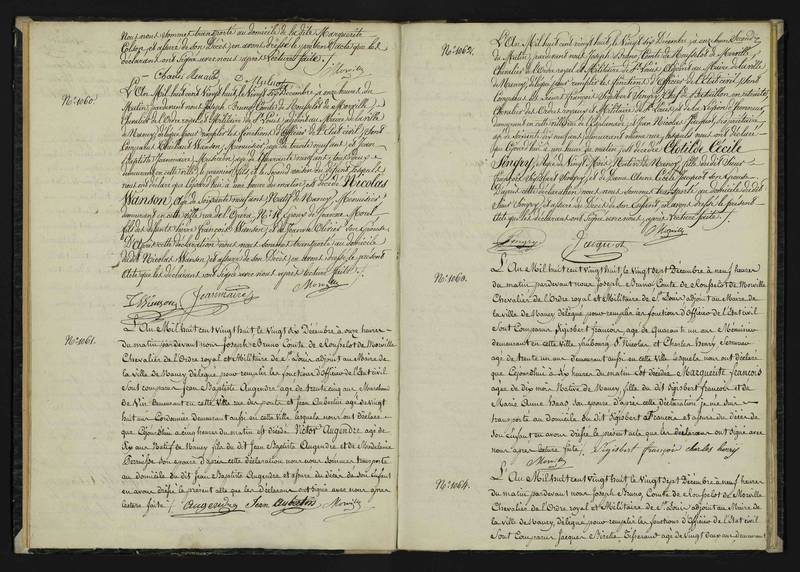 Nous nous sommes transporté au domicile de la dite Marguerite
et assuré de son Décès, en avons dressé le présent acte que les
déclarans ont signé avec nous après Lecture faite ./.
Charles
No. 1060.
L'An Mil huit cent vingt huit, le vingt six Décembre à onze heures du
Matin, pardevant nous Joseph Bruno Comte de Rousselot de Morville,
Chevalier de l'Ordre royal et Militaire de St. Louis, adjoint au Maire de la ville
de Nancy, délégué pour remplir les fonctions d'Officier de l'Etat civil, Sont
Comparus Wanson, Menuisier, agé de trente neuf ans et Jean
Baptiste Jeanmaire,
demeurant en cette ville, le premier fils, et le second voisin du défunt, lesquels
nous ont déclaré que Cejourd'hui à une heure du matin, est décédé Nicolas
Wanson, agé de soixante neuf ans Natif de Nancy, Menuisier
demeurant en cette ville rue de l'Opera
fils des défunts Pierre François Wanson, et de son Epouse
D'après cette déclaration nous nous sommes transporté au domicile
du dit Nicolas Wanson, et assuré de son Décès, en avons dressé le présent
Acte que les déclarans ont signé avec nous après lecture faite ./.
Jeanmaire
No. 1061.
L'An Mil huit cent vingt huit le vingt six Décembre à onze heures
du matin pardevant nous Joseph Bruno Comte de Rousselot de Morville
Chevalier de l'Ordre royal et Militaire de St. Louis adjoint au Maire de
la ville de Nancy délégué pour remplir les fonctions d'Officier de l'Etat civil
Sont comparus Jean Baptiste Augendre agé de trente cinq ans Marchand
de Vin demeurant en cette Ville rue des ponts et Jean Aubertin agé de vingt
huit ans Cordonnier demeurant aussi en cette Ville lesquels nous ont déclaré
que Cejourd'hui à cinq heures du matin est décédé Victor Augendre agé de
dix ans Natif de Nancy fils du dit Jean Baptiste Augendre et de Madelaine
son épouse d'après cette déclaration nous nous sommes transporté
au domicile du dit Jean Baptiste Augendre et assuré du décès de son Enfant
en avons dressé le présent acte que les déclarans ont signé avec nous après
lecture faite ./. Augendre Jean Aubertin
No. 1062.
L'An Mil huit cent vingt huit, le vingt six Décembre à onze heures
du Matin, pardevant nous Joseph Bruno Comte de Rousselot de Morville
Chevalier de l'Ordre royal et Militaire de St. Louis, adjoint au Maire de la ville
de Nancy, délégué pour remplir les fonctions d'Officier de l'Etat civil, Sont
Comparus les Sieurs François Singry, Chef de Bataillon en retraite,
Chevalier des Ordres royaux et Militaire de St. Louis et de la Légion d'honneur,
demeurant en cette ville et Jean Nicolas Jacquot,
agé de soixante six ans, demeurant même rue, lesquels nous ont déclaré
que Cejourd'hui à une heure du matin, est décédée Clotilde Cécile
Singry, agée de Vingt Mois, Native de Nancy, fille du dit Sieur
François Singry, et de Dame son Epouse.
D'après cette déclaration nous nous sommes transporté au domicile du dit
Sieur Singry, et assuré du Décès de son Enfant, en avons dressé le présent
acte que les déclarans ont signé avec nous, après Lecture faite ./.
Singry Jacquot
No. 1063.
L'An Mil huit cent Vingt huit le vingt sept Décembre à neuf heures
du matin pardevant nous Joseph Bruno Comte de Rousselot de Morville
Chevalier de l'Ordre royal et Militaire de St. Louis adjoint au Maire de
la ville de Nancy délégué pour remplir les fonctions d'Officier de l'Etat civil
Sont Comparus Sigisbert François agé de Quarante un ans Menuisier
demeurant en cette Ville faubourg St. Nicolas et Charles Henry
agé de trente un ans demeurant aussi en cette ville lesquels nous ont déclaré
que Cejourd'hui à dix heures du matin est décédée Marguerite François
agée de dix mois Native de Nancy fille du dit Sigisbert François et de
Marie Anne son épouse d'après cette déclaration je me suis
transporté au domicile du dit Sigisbert François et assuré du décès de
son Enfant en avons dressé le présent acte que les déclarans ont signé avec
nous après lecture faite ./. Sigisbert françois charles henry
No. 1064.
L'An Mil huit cent Vingt huit le Vingt sept Décembre à neuf heures
du matin pardevant nous Joseph Bruno Comte de Rousselot de Morville
Chevalier de l'Ordre royal et Militaire de St. Louis adjoint au Maire de
la ville de Nancy, délégué pour remplir les fonctions d'Officier de l'Etat civil
Sont Comparus Jacques Tisserand agé de vingt deux ans demeurant